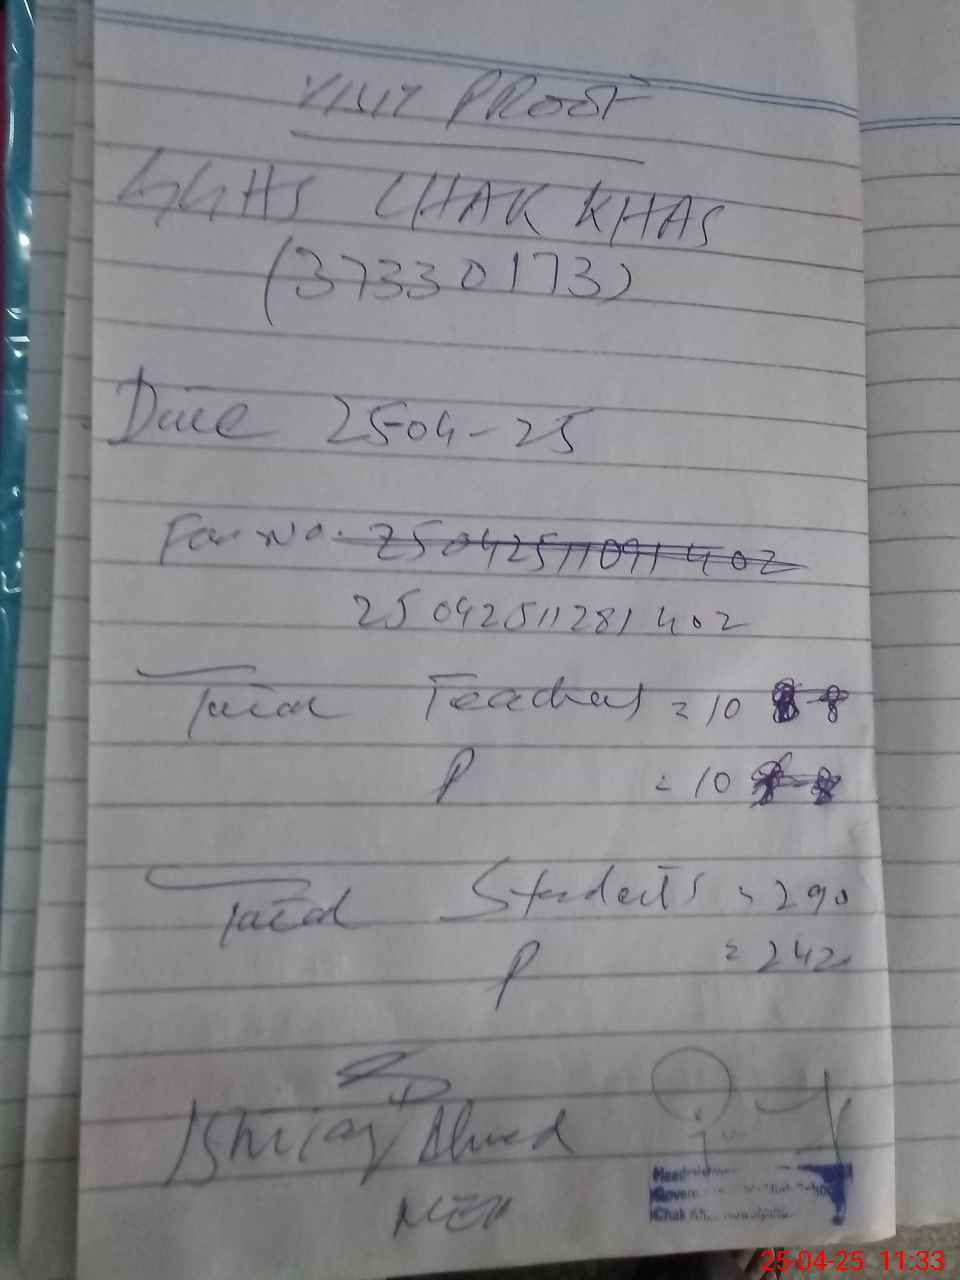 VISIT PROOF
GGHS CHAK KHAS
(37330173)
Date 25-04-25
For No. 25042511091402
25042511281402
Total Teachers = 10
P = 10
Total Students = 290
P = 242
Ahmed
MEA
Chak
25-04-25 11:33